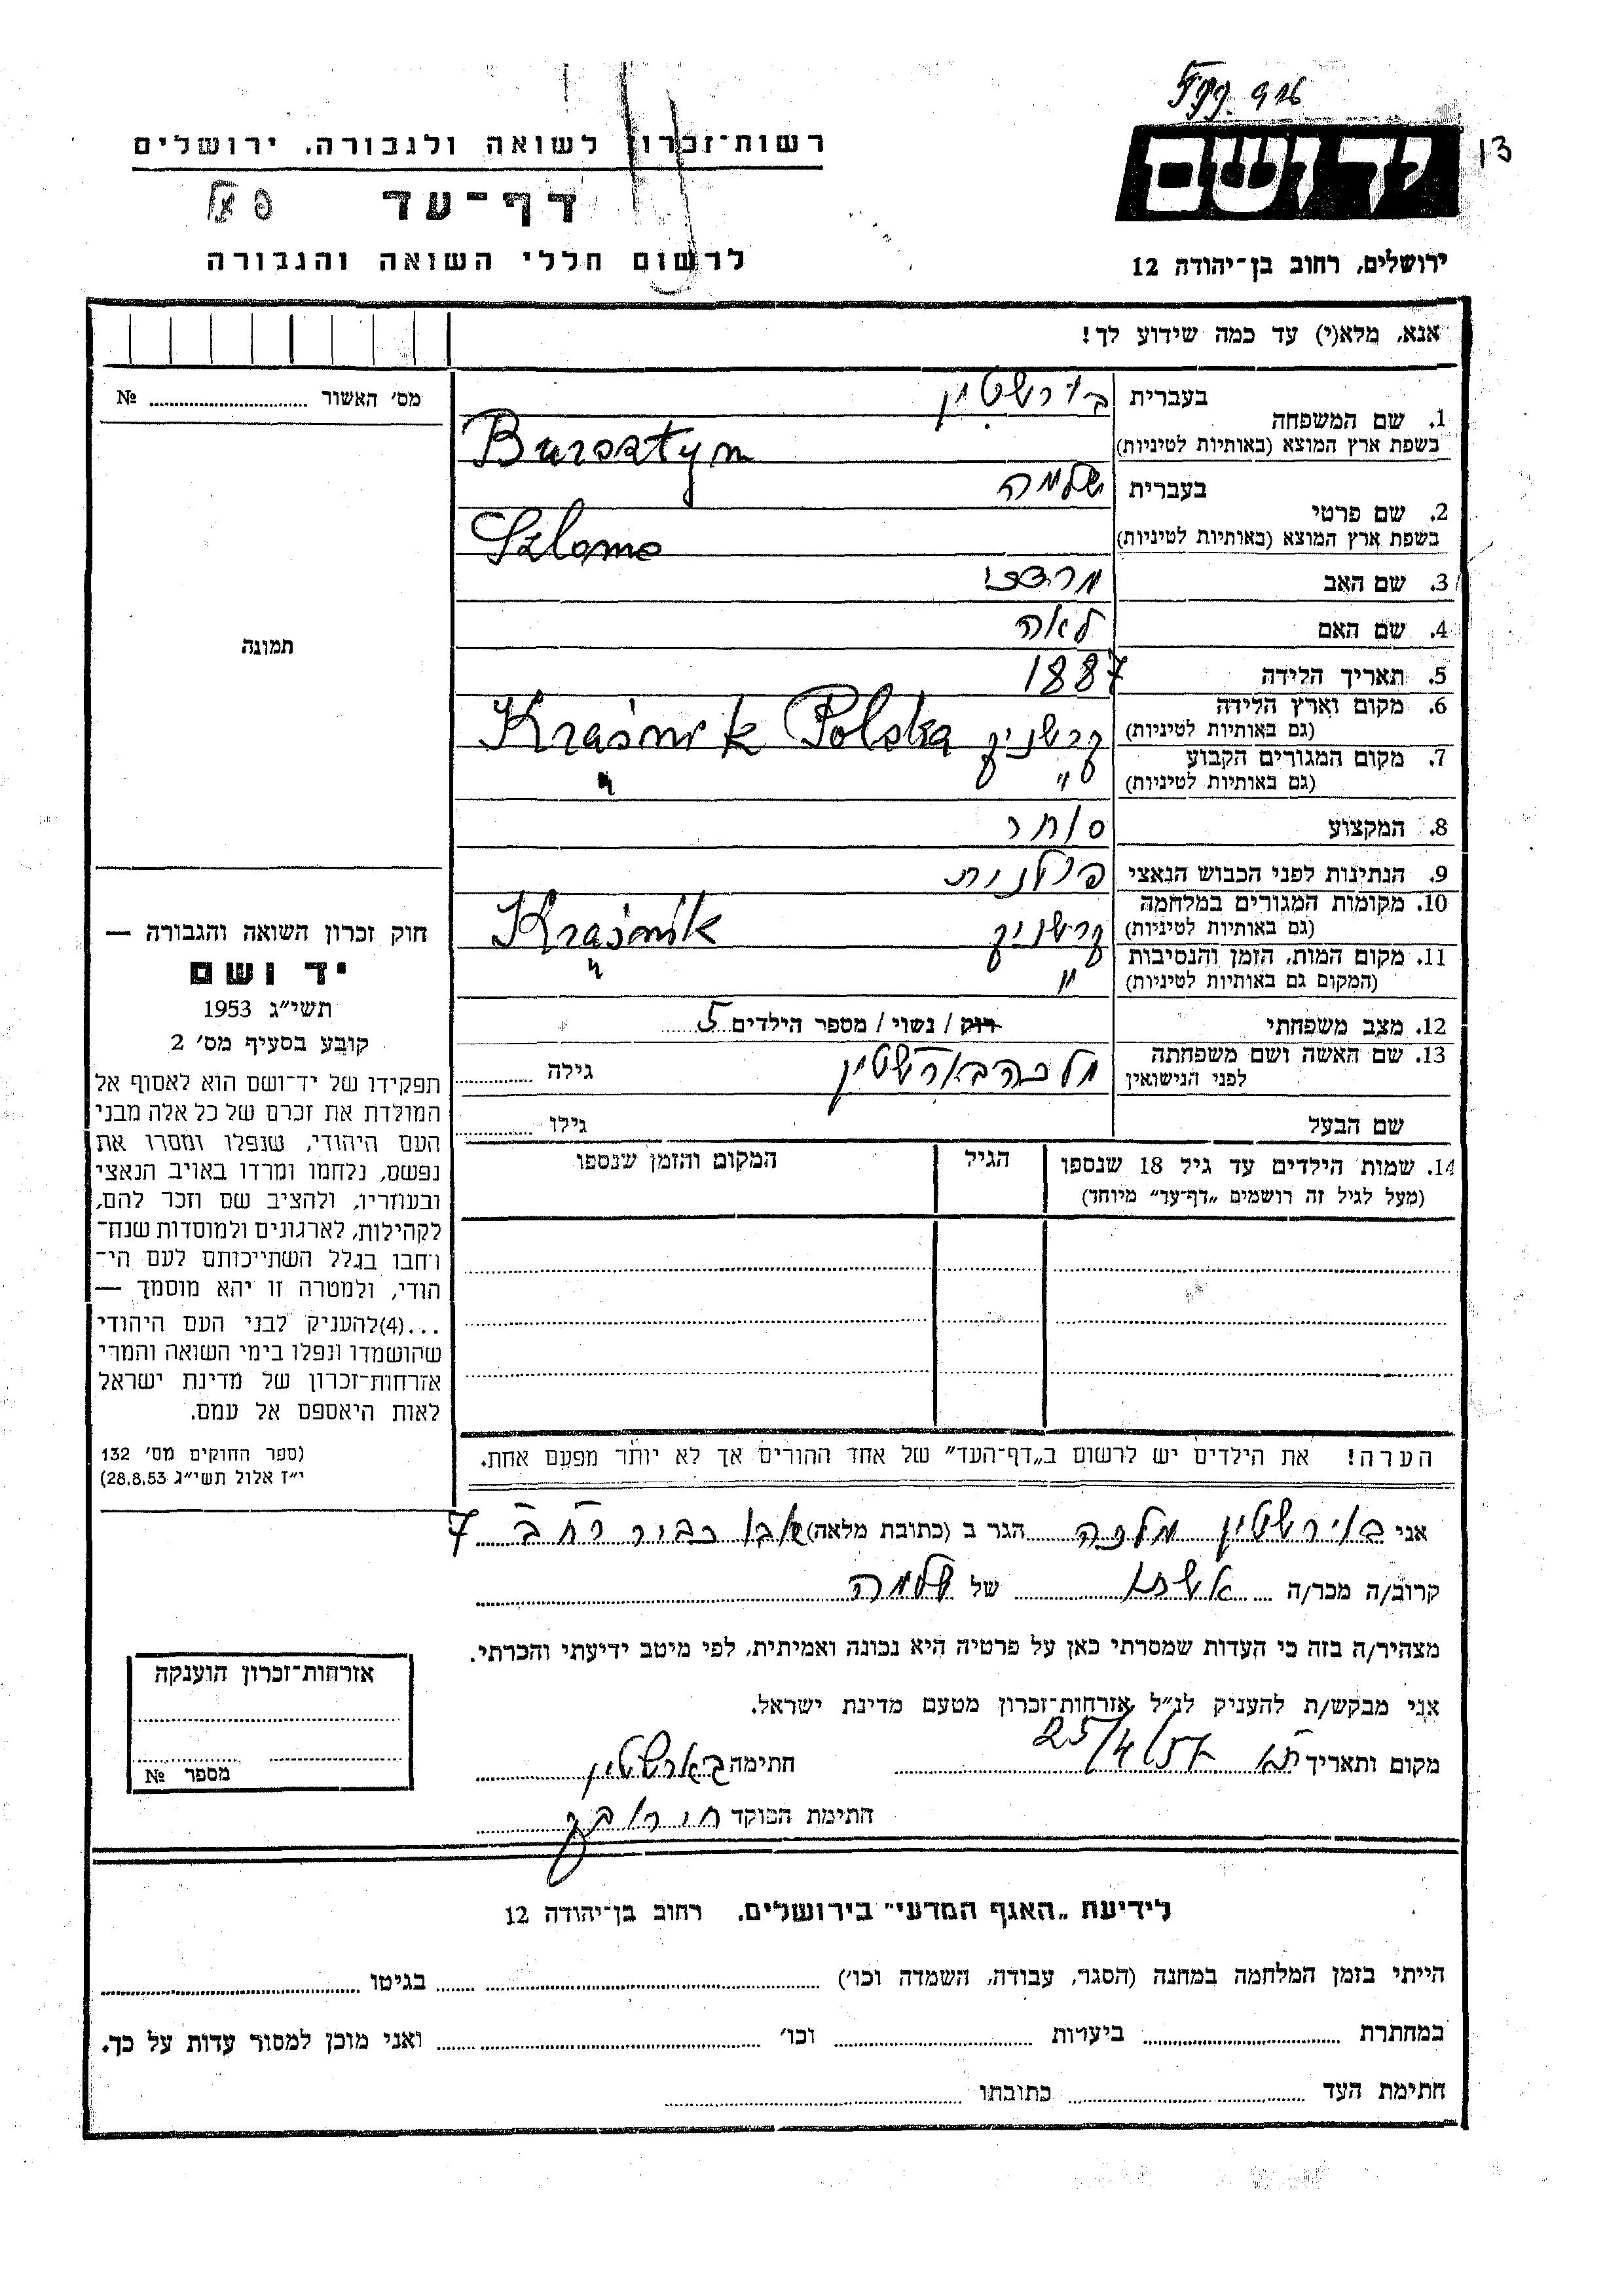 916
13
יד ושם
רשות־זכרון לשואה ולגבורה, ירושלים
דף־עד
לרשום חללי השואה והגבורה
ירושלים, רחוב בן־יהודה 12
אנא, מלא(י) עד כמה שידוע לך!
מס׳ האשור № 
1. שם המשפחה בעברית בורשטין
בשפת ארץ המוצא (באותיות לטיניות) Bursztyn
2. שם פרטי בעברית שלמה
בשפת ארץ המוצא (באותיות לטיניות) Szloma
3. שם האב מרדכי
4. שם האם לאה
5. תאריך הלידה 1887
6. מקום וארץ הלידה
(גם באותיות לטיניות) קרשניק Kraśnik Polska
7. מקום המגורים הקבוע
(גם באותיות לטיניות) " "
8. המקצוע סוחר
9. הנתינות לפני הכבוש הנאצי פולנית
10. מקומות המגורים במלחמה
(גם באותיות לטיניות) קרשניק Kraśnik
11. מקום המות, הזמן והנסיבות
(המקום גם באותיות לטיניות) " "
12. מצב משפחתי רוק / נשוי / מספר הילדים 5
13. שם האשה ושם משפחתה
לפני הנישואין מלכה בארשטין גילה
שם הבעל גילו
14. שמות הילדים עד גיל 18 שנספו הגיל המקום והזמן שנספו
(מעל לגיל זה רושמים „דף־עד״ מיוחד)
הערה! את הילדים יש לרשום ב„דף־העד״ של אחד ההורים אך לא יותר מפעם אחת.
תמונה
חוק זכרון השואה והגבורה —
יד ושם
תשי״ג 1953
קובע בסעיף מס׳ 2
תפקידו של יד־ושם הוא לאסוף אל
המולדת את זכרם של כל אלה מבני
העם היהודי, שנפלו ומסרו את
נפשם, נלחמו ומרדו באויב הנאצי
ובעוזריו, ולהציב שם וזכר להם,
לקהילות, לארגונים ולמוסדות שנח־
רחבו בגלל השתייכותם לעם הי־
הודי, ולמטרה זו יהא מוסמך —
...(4)להעניק לבני העם היהודי
שהושמדו ונפלו בימי השואה והמרי
אזרחות־זכרון של מדינת ישראל
לאות היאספם אל עמם.
(ספר החוקים מס׳ 132
י״ז אלול תשי״ג 28.8.53)
אני בורשטין מלכה הגר ב (כתובת מלאה) אבו כביר רחב 7
קרוב/ה מכר/ה אשתו של שלמה
מצהיר/ה בזה כי העדות שמסרתי כאן על פרטיה היא נכונה ואמיתית, לפי מיטב ידיעתי והכרתי.
אני מבקש/ת להעניק לנ״ל אזרחות־זכרון מטעם מדינת ישראל.
מקום ותאריך ת"א 25/4/57 חתימה בארשטין
חתימת הפוקד
אזרחות־זכרון הוענקה
מספר №
לידיעת „האגף המדעי״ בירושלים, רחוב בן־יהודה 12
הייתי בזמן המלחמה במחנה (הסגר, עבודה, השמדה וכו׳) בגיטו
במחתרת ביערות וכו׳ ואני מוכן למסור עדות על כך.
חתימת העד כתובתו